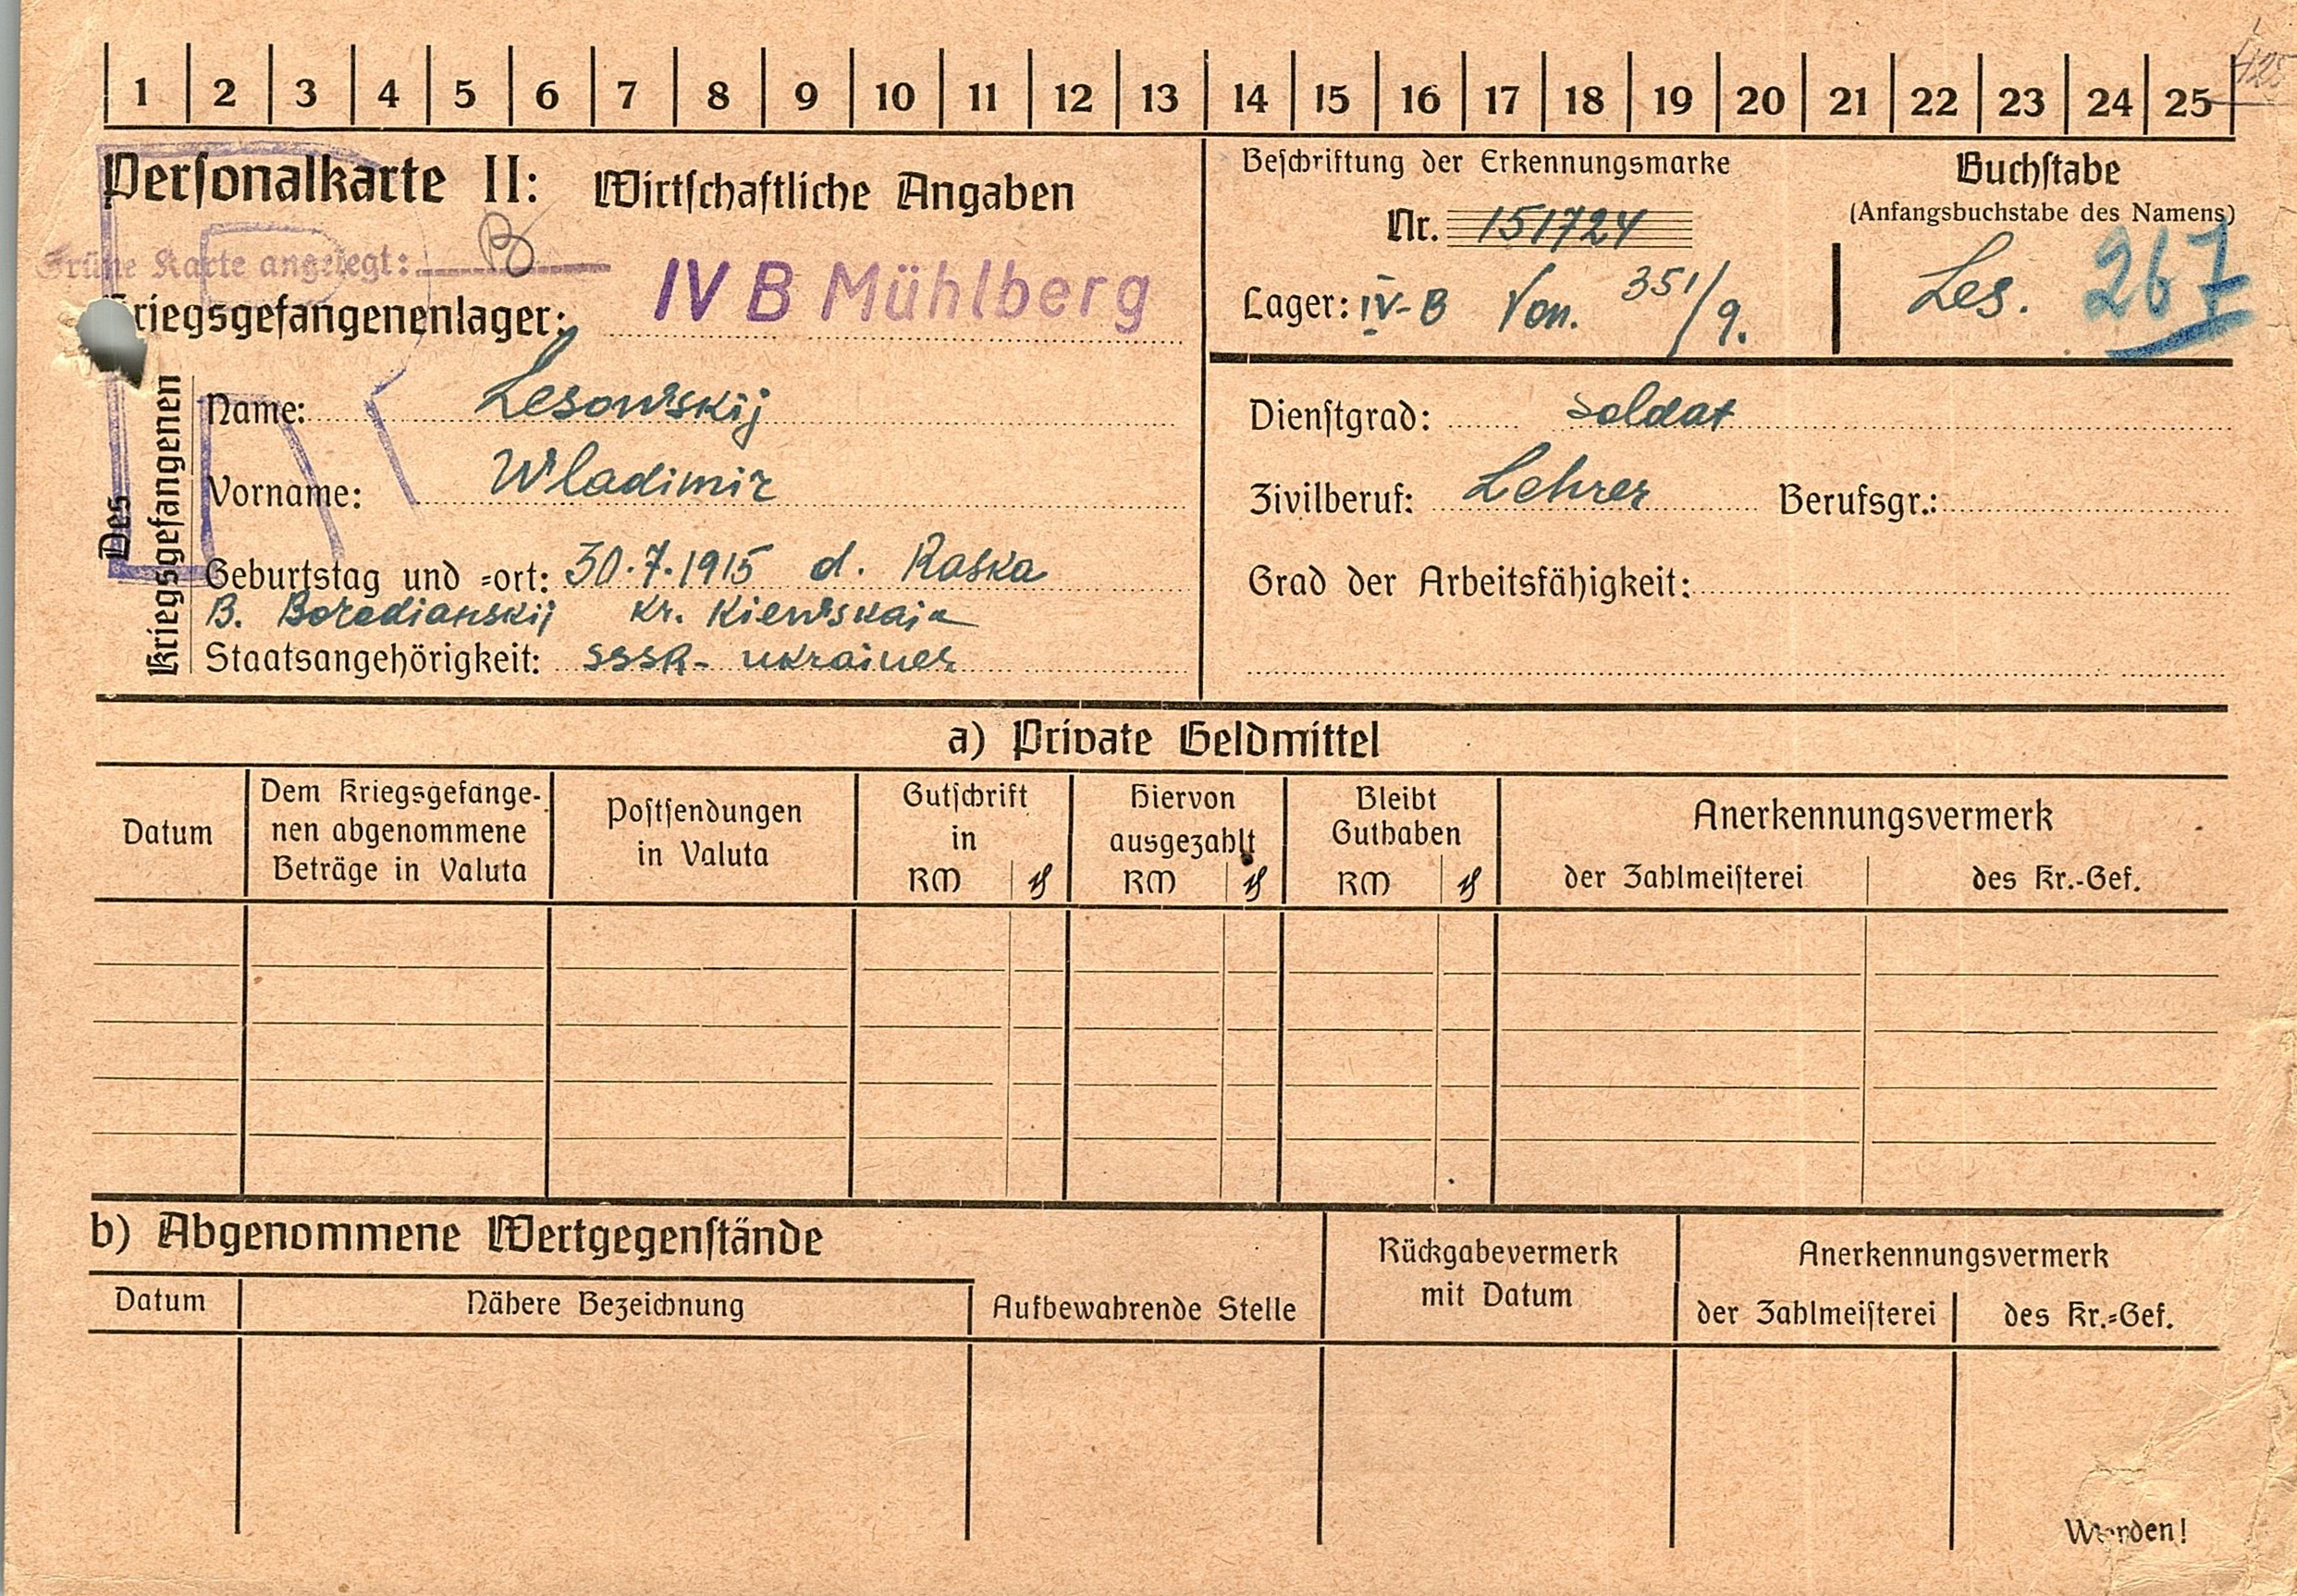 1 2 3 4 5 6 7 8 9 10 11 12 13 14 15 16 17 18 19 20 21 22 23 24 25
Perſonalkarte II: Wirtſchaftliche Angaben
Grüne Karte angelegt:
Kriegsgefangenenlager: IV B Mühlberg
Beſchriftung der Erkennungsmarke
Nr. 151724
Lager: IV-B Von. 351/9.
Buchſtabe
(Anfangsbuchstabe des Namens)
Les. 267
Des Kriegsgefangenen
Name: Lesowskij
Vorname: Wladimir
Geburtstag und =ort: 30.7.1915 d. Raska
B. Borodianskij Kr. Kiewskaja
Staatsangehörigkeit: SSSR- ukrainer
Dienſtgrad: Soldat
Zivilberuf: Lehrer Berufsgr.:
Grad der Arbeitsfähigkeit:
a) Private Geldmittel
Datum
Dem Kriegsgefange-
nen abgenommene
Beträge in Valuta
Poſtſendungen
in Valuta
Gutſchrift
in
RM ₰
Hiervon
ausgezahlt
RM ₰
Bleibt
Guthaben
RM ₰
Anerkennungsvermerk
der Zahlmeiſterei des Kr.-Gef.
b) Abgenommene Wertgegenſtände
Datum Nähere Bezeichnung Aufbewahrende Stelle
Rückgabevermerk
mit Datum
Anerkennungsvermerk
der Zahlmeiſterei des Kr.=Gef.
Wenden!